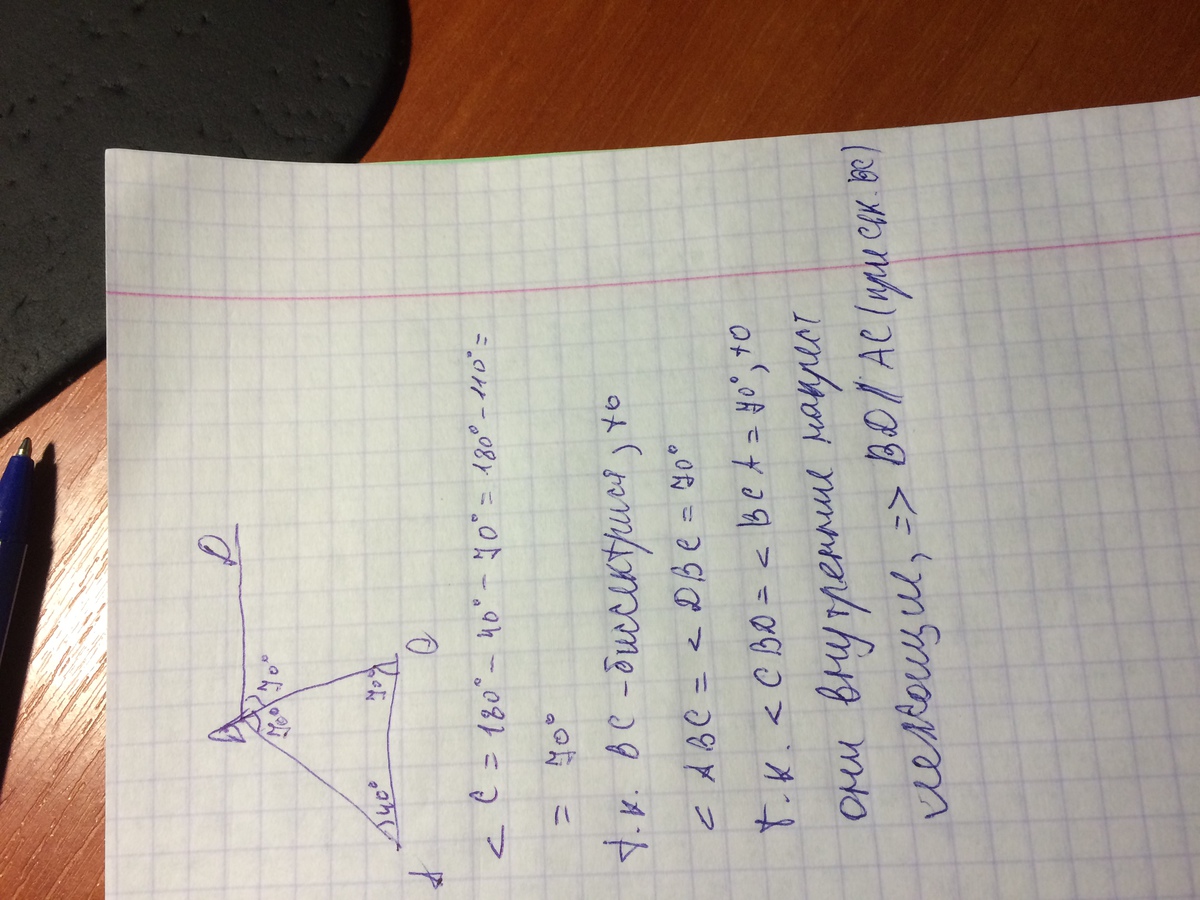 B D
70° 70°
40° 70°
A C
< C = 180° - 40° - 70° = 180° - 110° =
= 70°
т.к. BC - биссектриса, то
< ABC = < DBC = 70°
т.к. < CBD = < BCA = 70°, то
они внутренние накрест
лежащие, => BD || AC (при сек. BC)